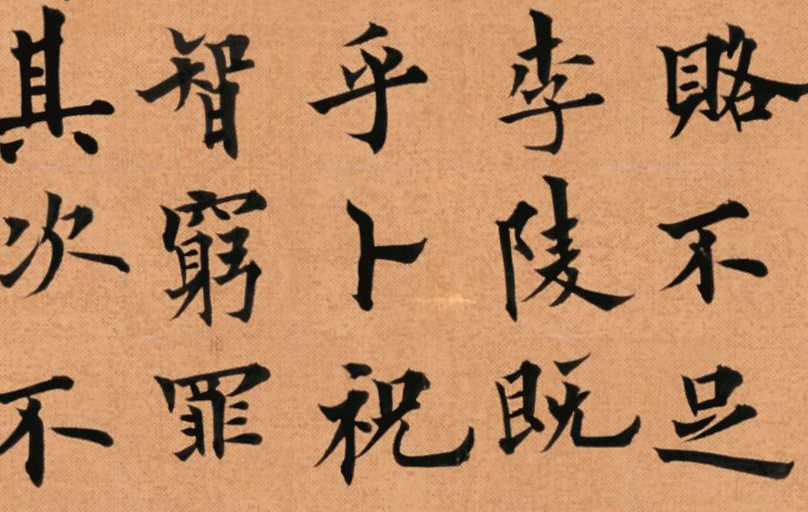 賂不足
李陵既
乎卜祝
智窮罪
其次不